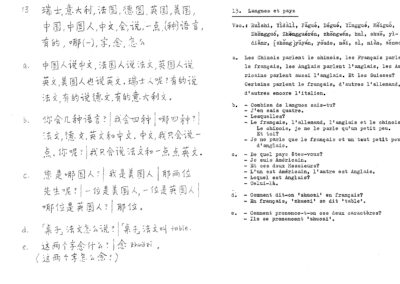 13 瑞士,意大利,法国,德国,英国,美国,
中国,中国人,中文,会,说,一点,(种)语言,
有的,哪(一),字,念,怎么
a. 中国人说中文,法国人说法文,英国人说
英文,美国人也说英文,瑞士人呢?有的说
法文,有的说德文,有的意大利文。
b. 你会几种语言?|我会四种|哪四种?|
法文,德文,英文和中文,中文,我只会说一
点,你呢?|我只会说法文和一点点英文
c. 您是哪国人?|我是美国人|那两位
先生呢?|一位是美国人,一位是英国人|
哪位是英国人?|那位.
d. 「桌子」法文怎么说?|「桌子」法文叫 table.
e. 这两个字念什么?|念 zhuōzi.
(这两个字怎么念?)
13. Langues et pays
Voc.: Ruìshì, Yìdàlì, Fǎguó, Déguó, Yīngguó, Měiguó,
Zhōngguó, Zhōngguórén, zhōngwén, huì, shuō, yì-
diǎnr, (zhǒng)yǔyán, yǒude, něi, zì, niàn, zěnme
a. Les Chinois parlent le chinois, les Français parlent
le français, les Anglais parlent l'anglais, les Amé-
ricains parlent aussi l'anglais. Et les Suisses?
Certains parlent le français, d'autres l'allemand,
d'autres encore l'italien.
b. - Combien de langues sais-tu?
- J'en sais quatre.
- Lesquelles?
- Le français, l'allemand, l'anglais et le chinois.
Le chinois, je ne le parle qu'un petit peu.
Et toi?
- Je ne parle que le français et un tout petit peu
d'anglais.
c. - De quel pays êtes-vous?
- Je suis Américain.
- Et ces deux Messieurs?
- L'un est Américain, l'autre est Anglais.
- Lequel est Anglais?
- Celui-là.
d. - Comment dit-on "zhuozi" en français?
- En français, "zhuozi" se dit "table".
e. - Comment prononce-t-on ces deux caractères?
- Ils se prononcent "zhuozi".